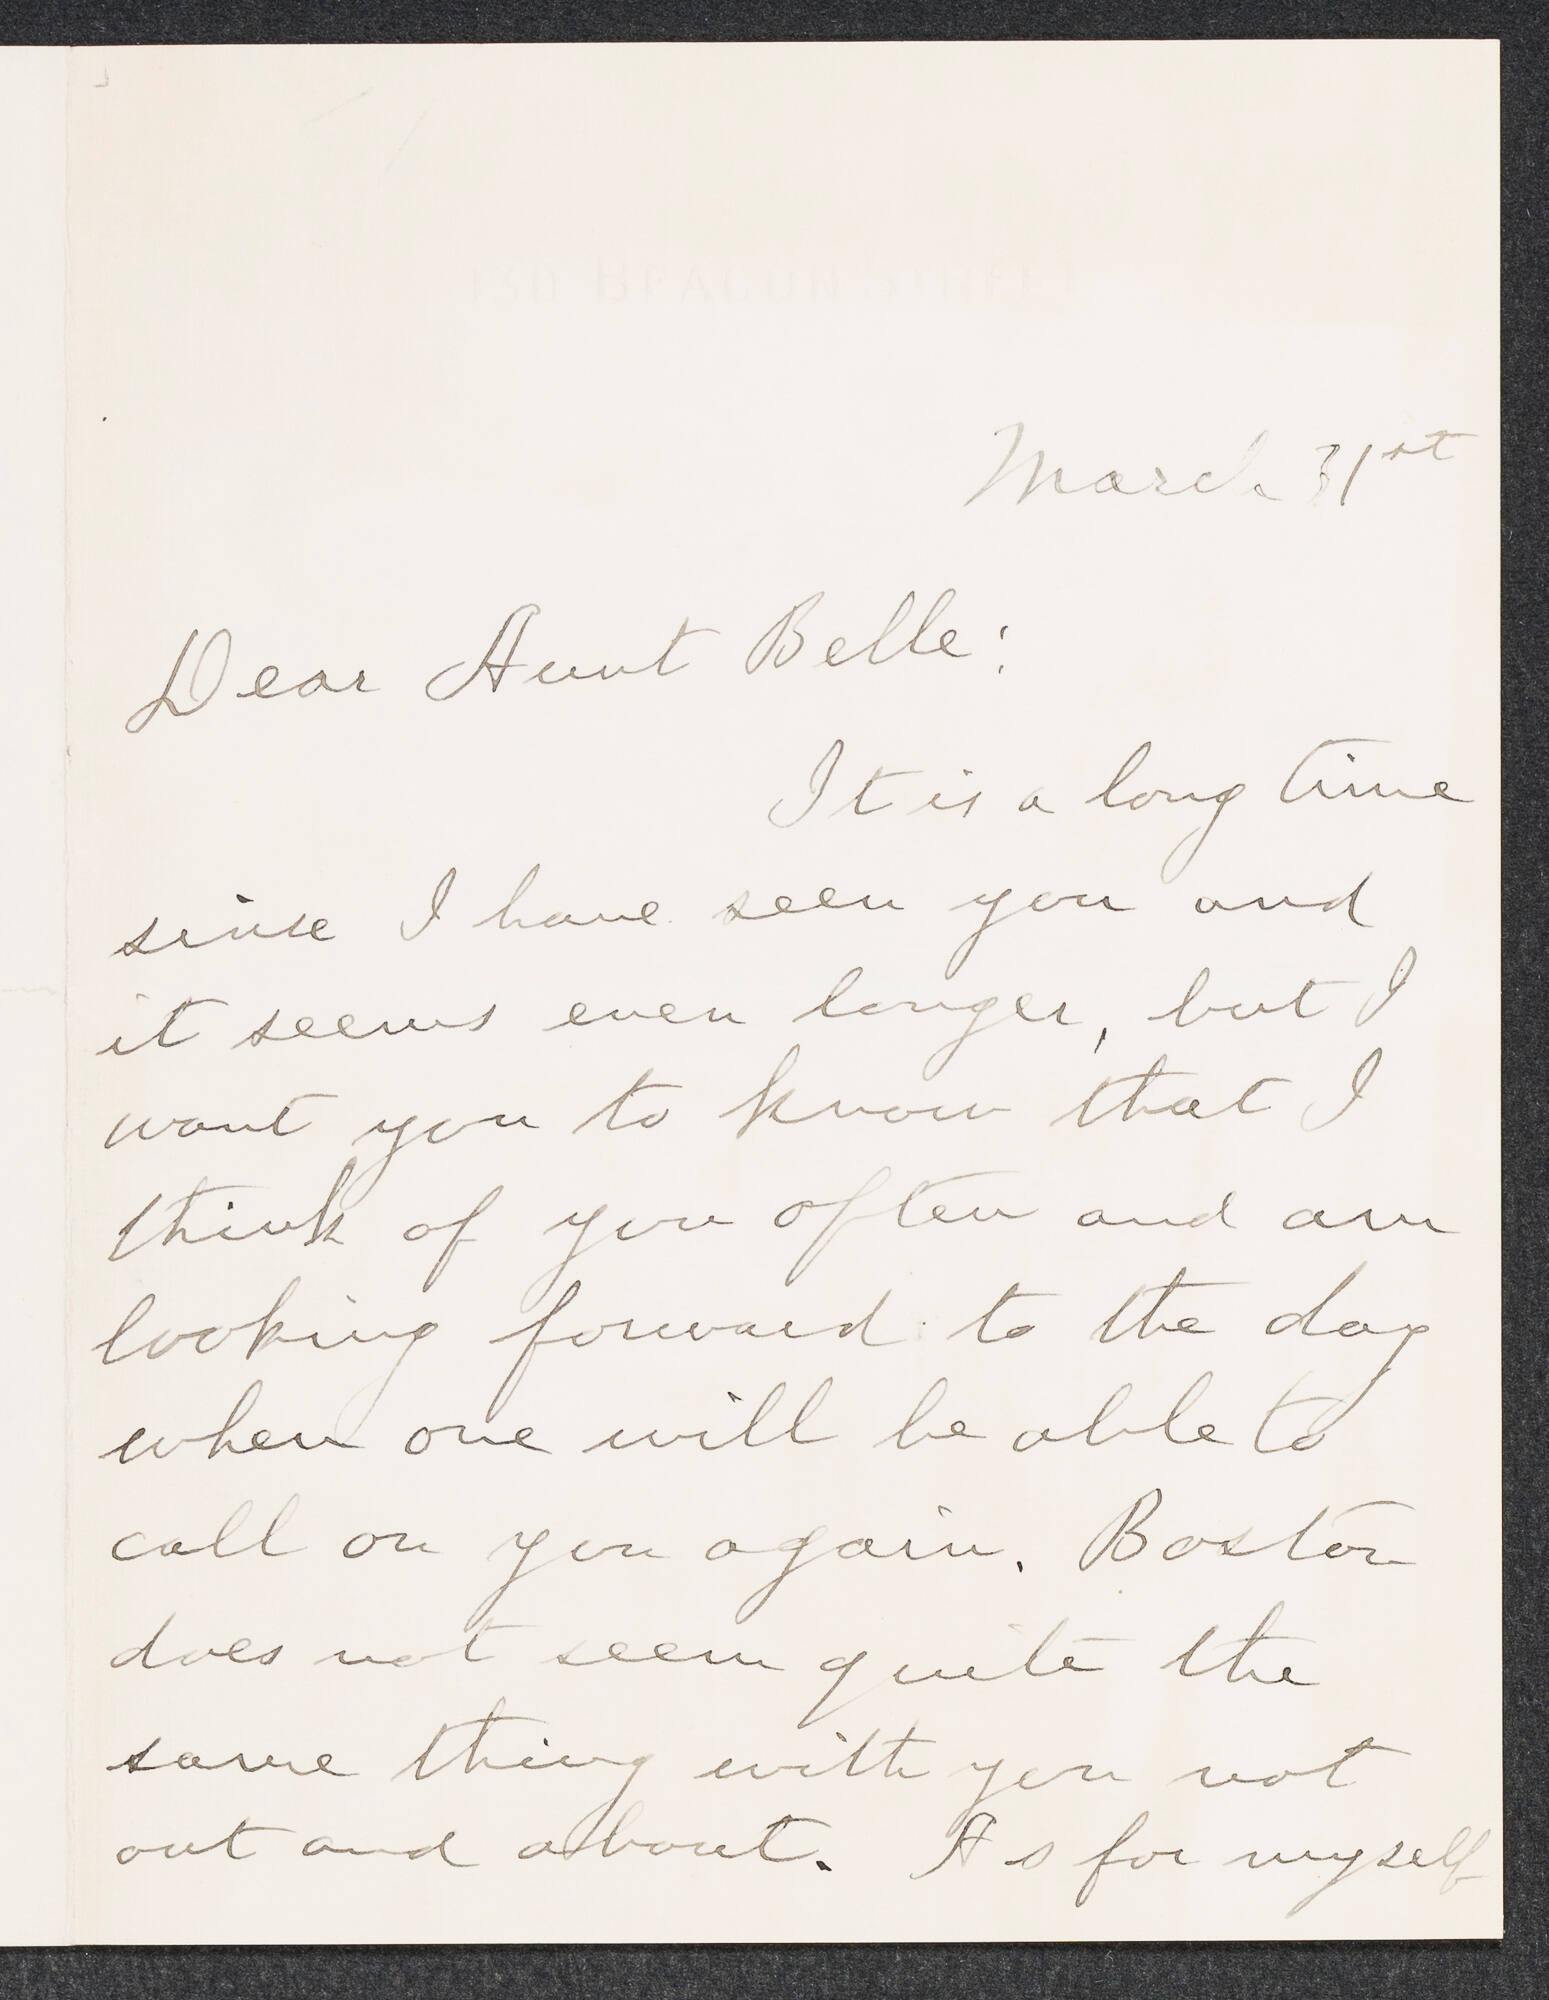 130 BEACON STREET
March 31st
Dear Aunt Belle:
It is a long time
since I have seen you and
it seems even longer, but I
want you to know that I
think of you often and am
looking forward to the day
when one will be able to
call on you again. Boston
does not seem quite the
same thing with you not
out and about. As for myself